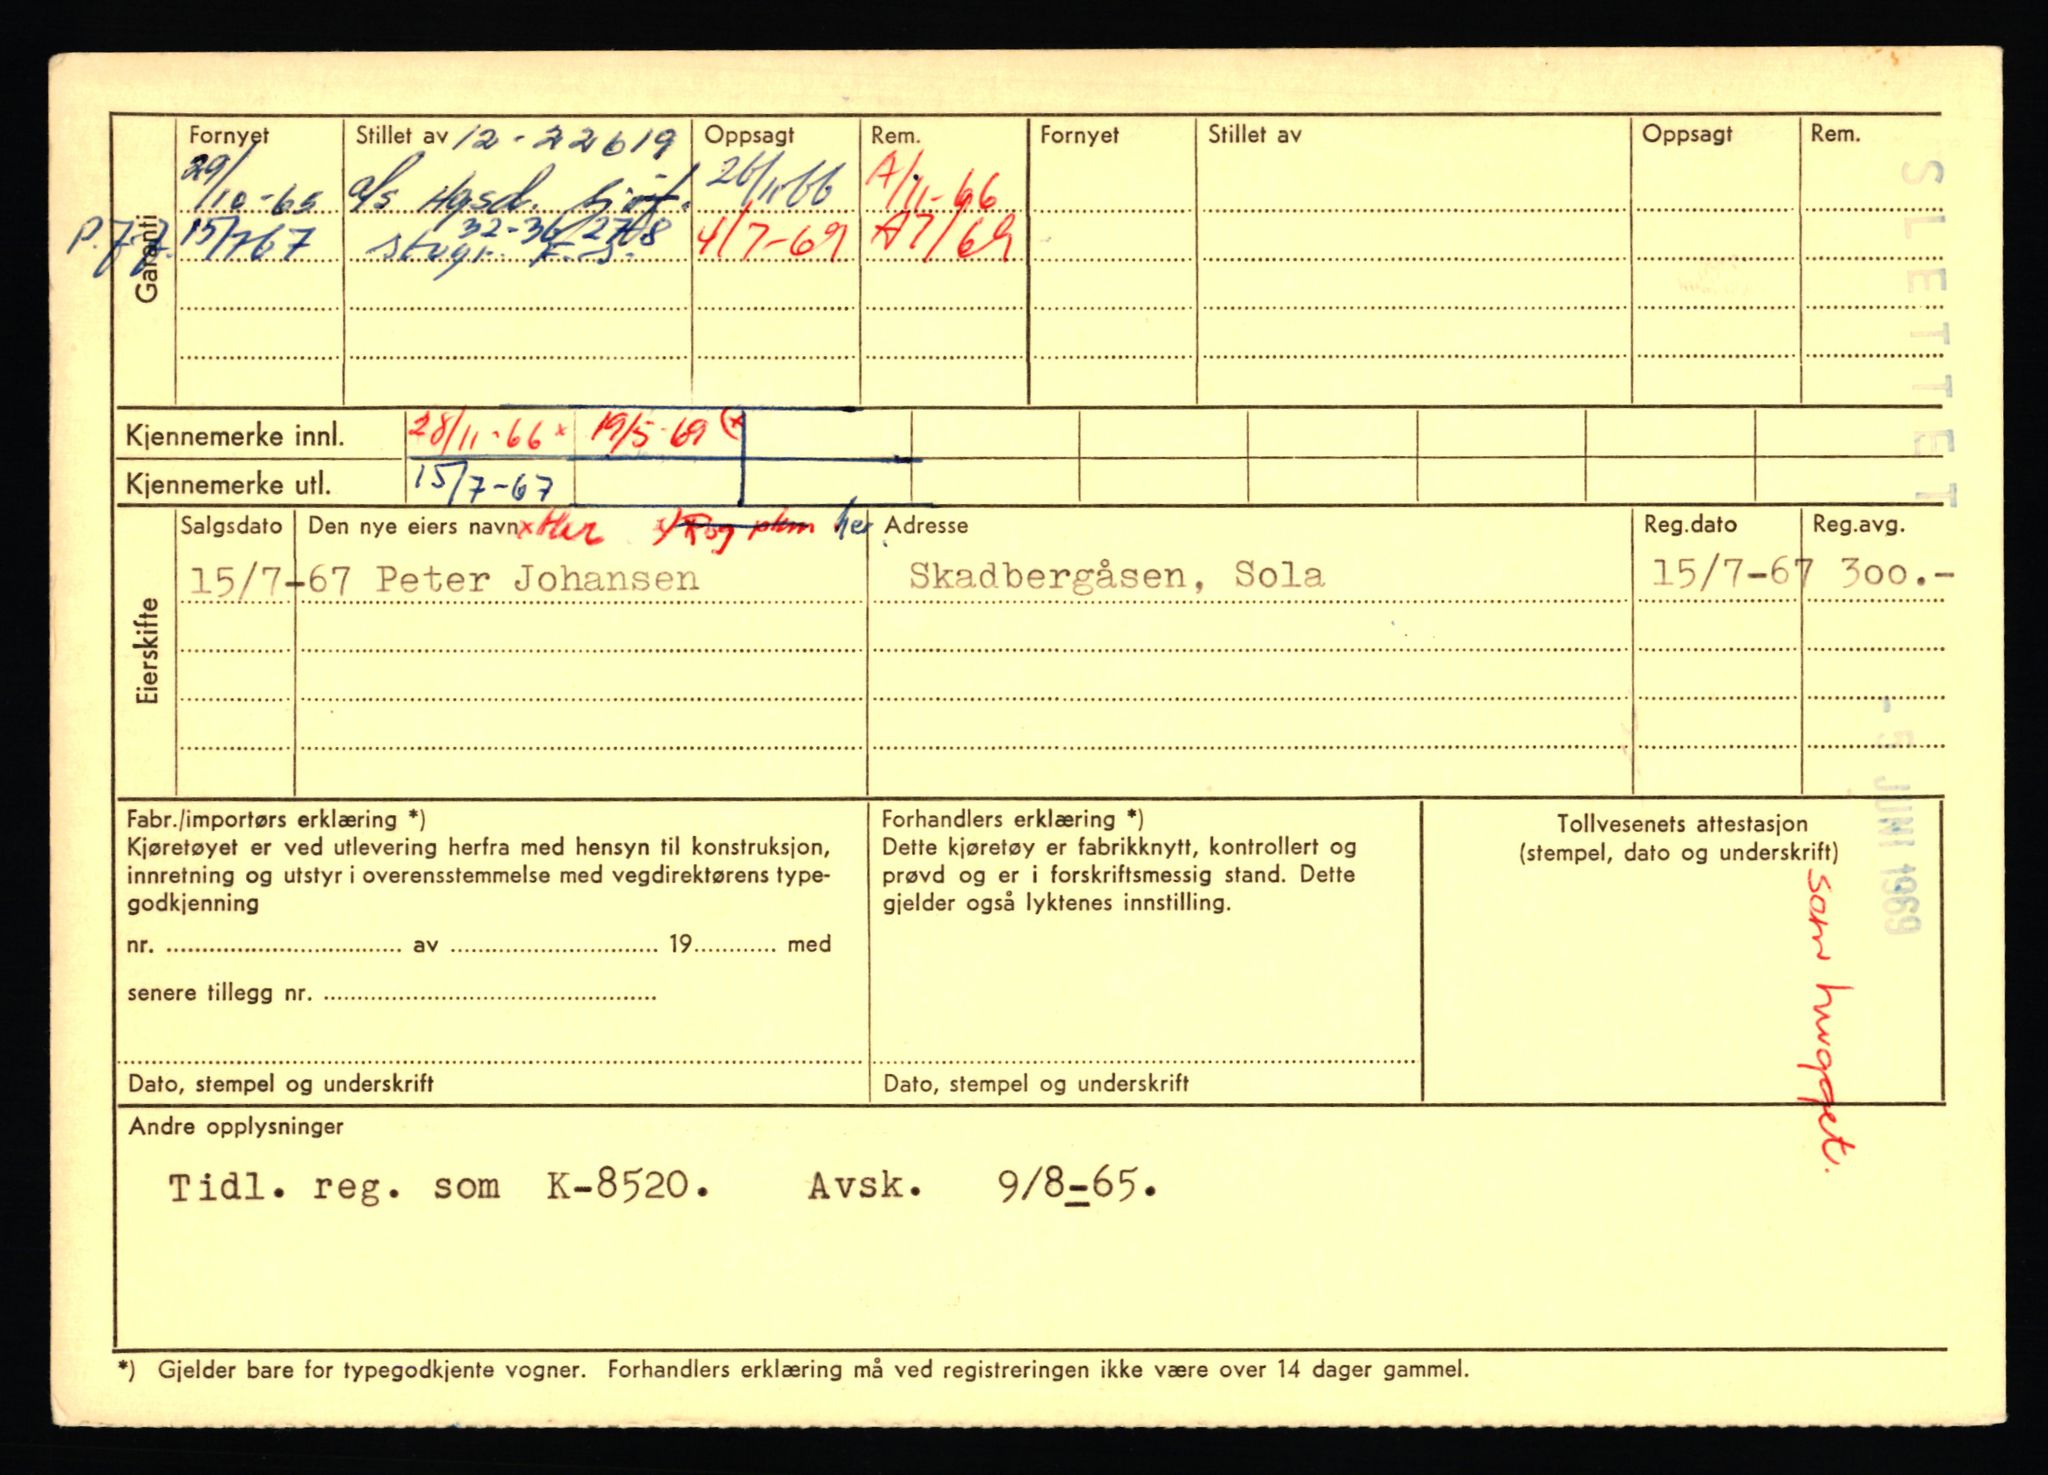 Garanti
Fornyet Stillet av 12-22619 Oppsagt Rem. Fornyet Stillet av Oppsagt Rem.
29/10-65 a/s Hgsd. 26/11-66 A/11-66
15/7-67 32-36/2708 4/7-69 A7/69
Kjennemerke innl. 28/11-66 x 19/5-69 (x
Kjennemerke utl. 15/7-67
Eierskifte
Salgsdato Den nye eiers navn x Her x) Rog her Adresse Reg.dato Reg.avg.
15/7-67 Peter Johansen Skadbergåsen, Sola 15/7-67 300.-
Fabr./importørs erklæring *)
Kjøretøyet er ved utlevering herfra med hensyn til konstruksjon,
innretning og utstyr i overensstemmelse med vegdirektørens type-
godkjenning
nr. av 19 med
senere tillegg nr.
Dato, stempel og underskrift
Forhandlers erklæring *)
Dette kjøretøy er fabrikknytt, kontrollert og
prøvd og er i forskriftsmessig stand. Dette
gjelder også lyktenes innstilling.
Dato, stempel og underskrift
Tollvesenets attestasjon
(stempel, dato og underskrift)
SLETTET
- 5 JUNI 1969
som hugget.
Andre opplysninger
Tidl. reg. som K-8520. Avsk. 9/8-65.
*) Gjelder bare for typegodkjente vogner. Forhandlers erklæring må ved registreringen ikke være over 14 dager gammel.